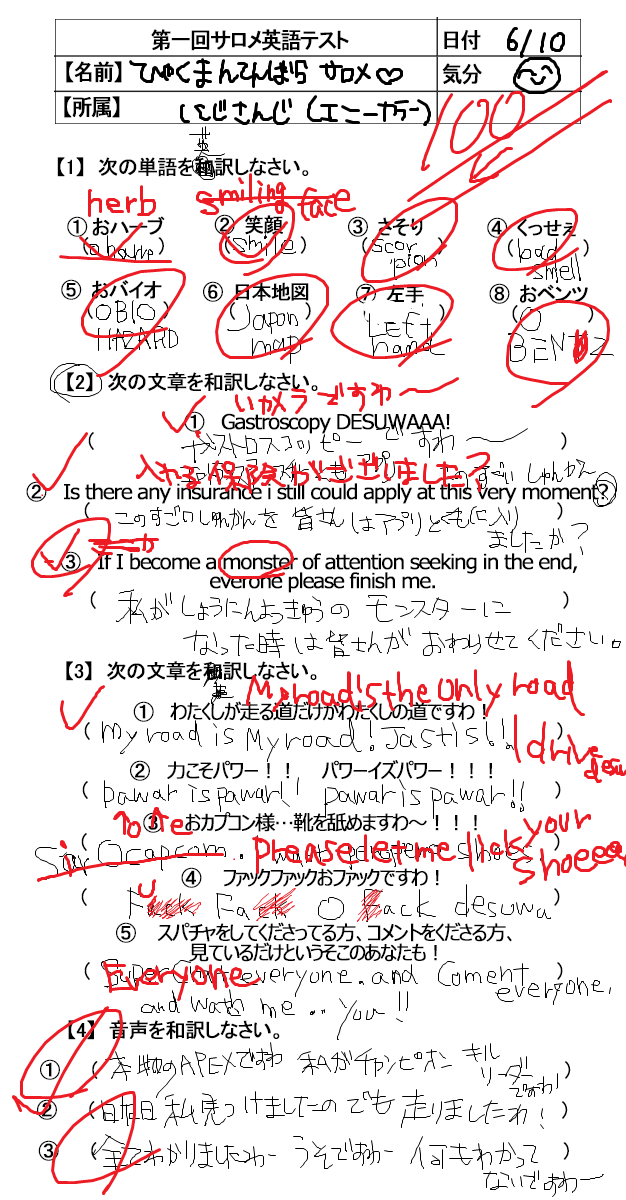 第一回サロメ英語テスト 日付 6/10
【名前】ひゃくまんてんばら サロメ♡ 気分
【所属】にじさんじ（エニーカラー）
100
【1】 次の単語を和訳しなさい。
英
herb smiling face
① おハーブ ② 笑顔 ③ さそり ④ くっせぇ
(Smile) (Scorpion) (bad smell)
⑤ おバイオ ⑥ 日本地図 ⑦ 左手 ⑧ おベンツ
(OBIO HAZARD) (Japan map) (LEFt hand) (O BENTZ)
【2】 次の文章を和訳しなさい。
いカメラですわ〜
① Gastroscopy DESUWAAA!
(ガストロスコッピーですわ〜)
入れる保険がございました？
② Is there any insurance i still could apply at this very moment?
(このすごいしゅんかんを皆さんはアプリともに入りましたか？)
③ If I become a monster of attention seeking in the end,
everone please finish me.
(私がしょうにんよっきゅうの モンスターに
なった時は皆さんが おわらせてください。)
【3】 次の文章を和訳しなさい。
英
My road's the only road
① わたくしが走る道だけがわたくしの道ですわ！
(my road is My road! Jastis!!)
I drive desu
② 力こそパワー！！ パワーイズパワー！！！
(pawar is pawar!! pawar is pawar!!)
③ おカプコン様…靴を舐めますわ〜！！！
Ocapcom
Please let me lick your shoeee
④ ファックファックおファックですわ！
(Fack O Fack desuwa)
u
⑤ スパチャをしてくださってる方、コメントをくださる方、
見ているだけというそこのあなたも！
Everyone
(Super Chat everyone. and Coment everyone,
and wath me...you!!)
【4】 音声を和訳しなさい。
① (本物のAPEXですわ 私がチャンピオン キルリーダーですわ!)
② (昨日私見つけましたのでも走りましたわ！)
③ (全てわかりましたわー うそですわー 何もわかって
ないですわー)